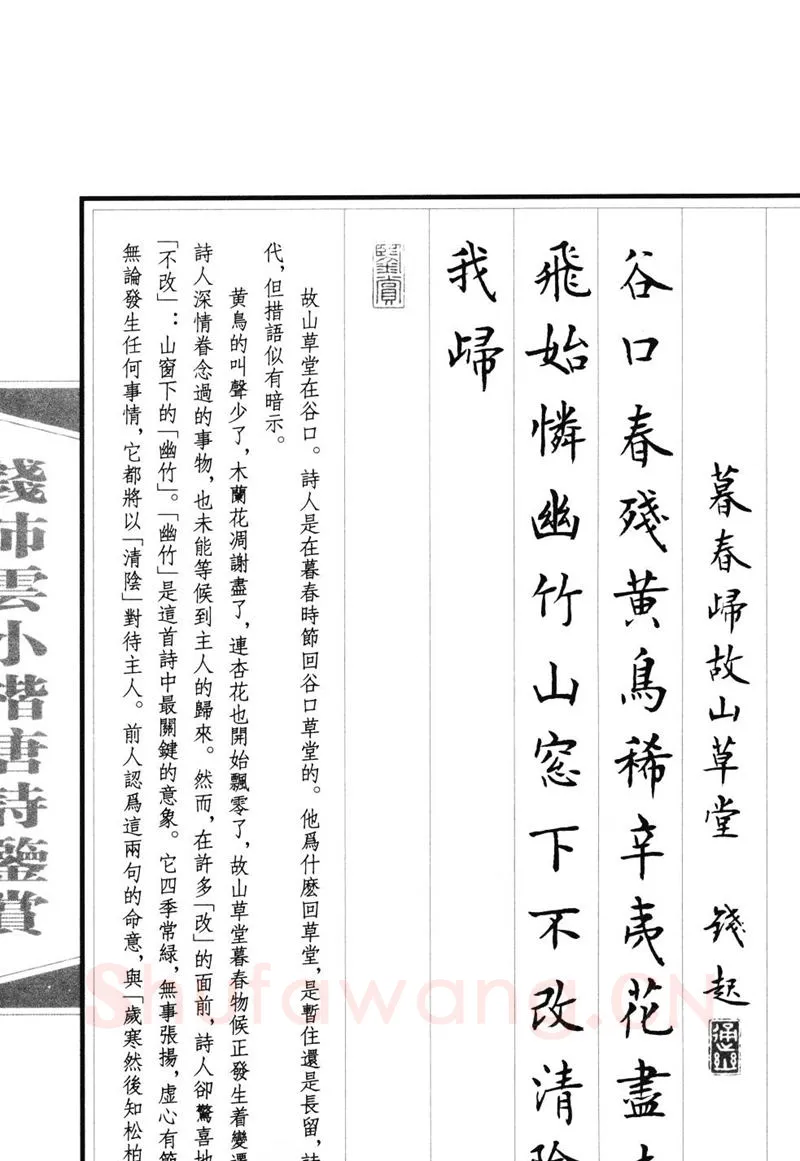 暮春歸故山草堂 錢起
谷口春殘黃鳥稀辛夷花盡
飛始憐幽竹山窓下不改清陰
我歸
鑒賞
故山草堂在谷口。詩人是在暮春時節回谷口草堂的。他爲什麽回草堂，是暫住還是長留，詩
代，但措語似有暗示。
黄鳥的叫聲少了，木蘭花凋謝盡了，連杏花也開始飄零了，故山草堂暮春物候正發生着變遷
詩人深情眷念過的事物，也未能等候到主人的歸來。然而，在許多「改」的面前，詩人卻驚喜地
「不改」：山窗下的「幽竹」。「幽竹」是這首詩中最關鍵的意象。它四季常緑，無事張揚，虚心有節
無論發生任何事情，它都將以「清陰」對待主人。前人認爲這兩句的命意，與「歲寒然後知松柏
錢沛雲小楷唐詩鑒賞
Shufawang.CN